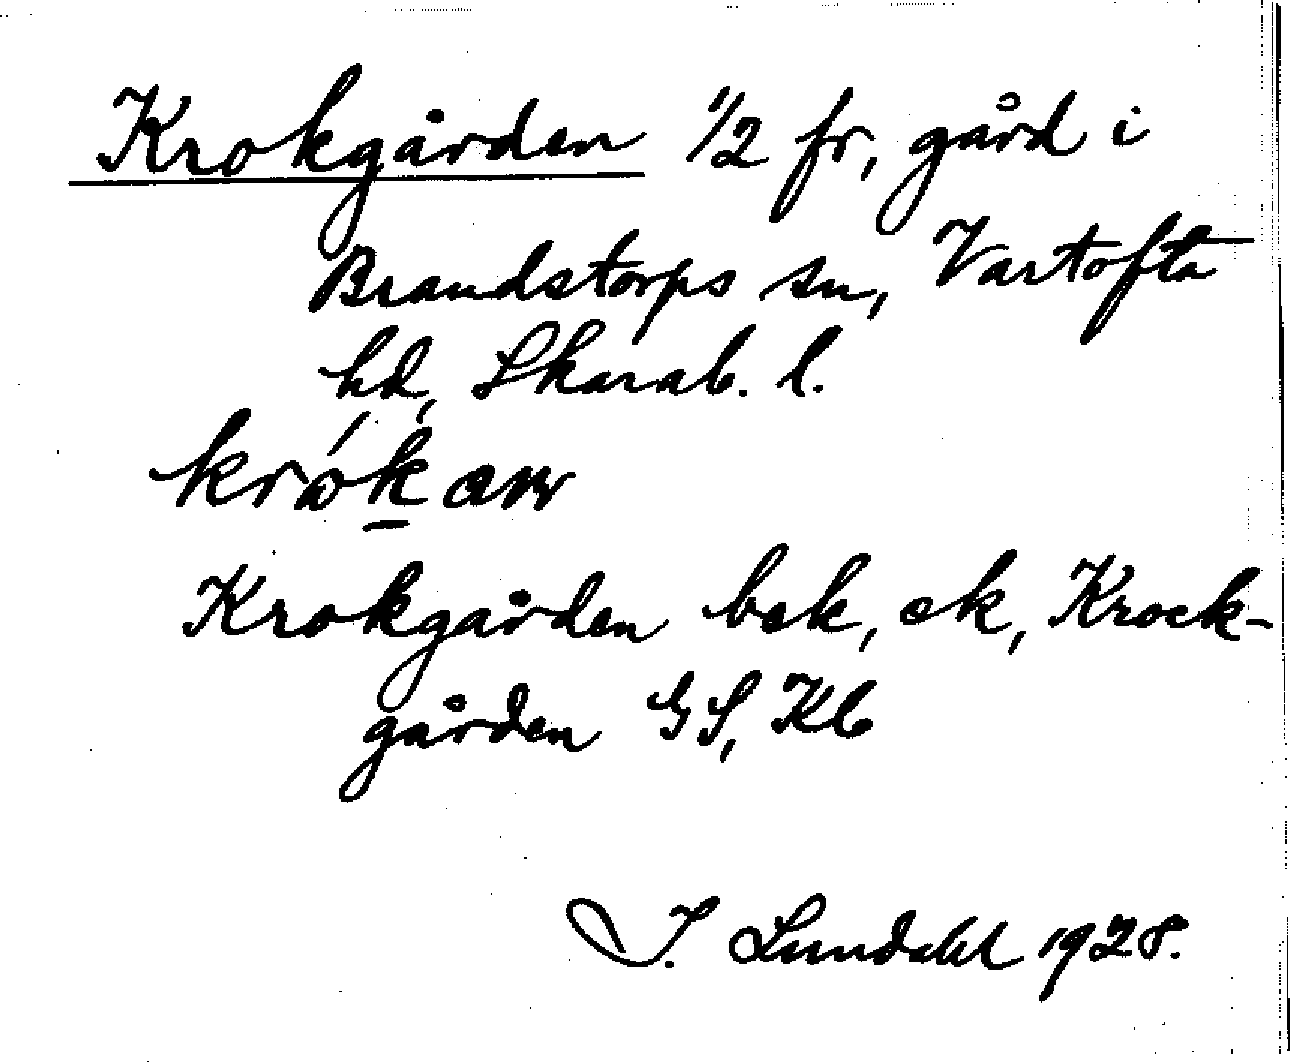 Krokgården 1/2 fr, gård i
Brandstorps sn, Vartofta
hd, Skarab. l.
Krokgården bek, ek, Krock-
gården GS, Kb
I. Lundahl 1928.